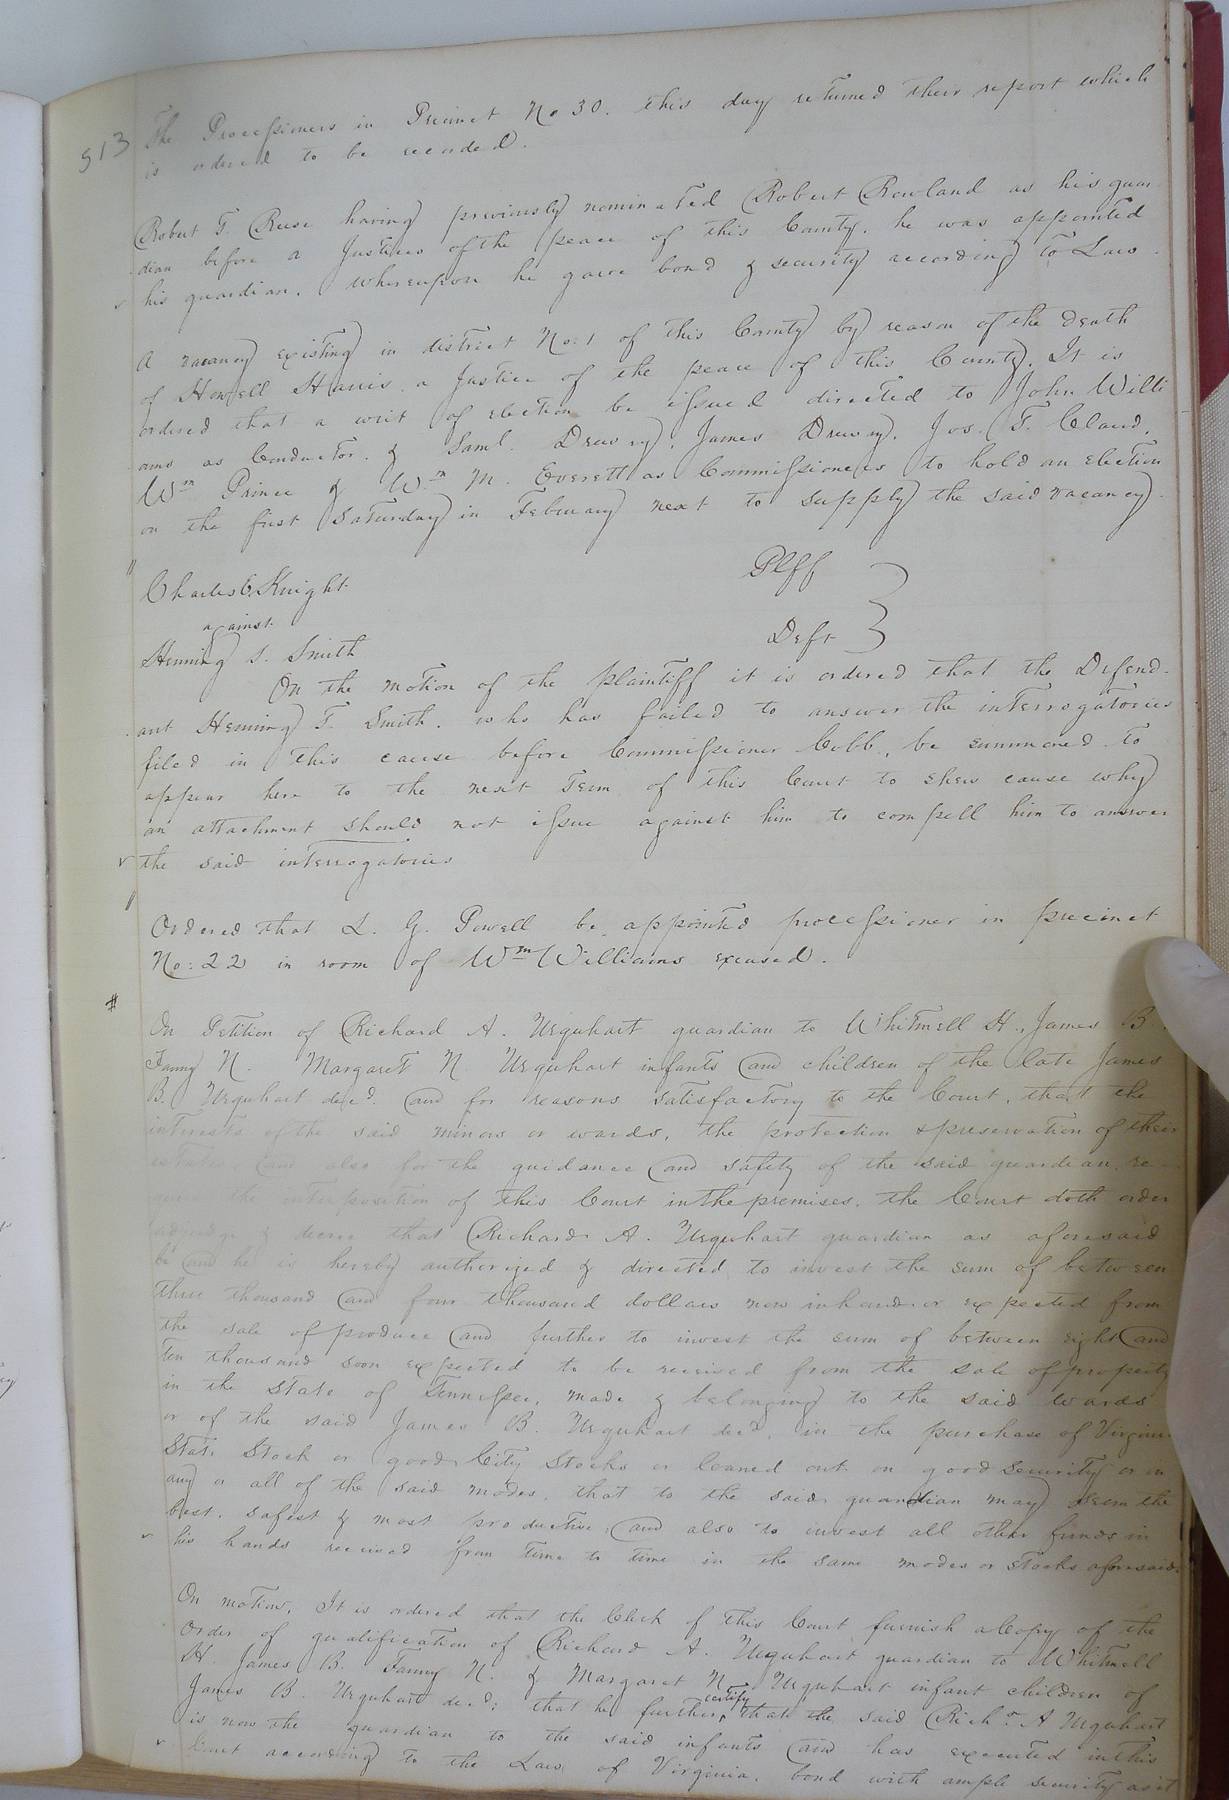 513
The Processioners in Precinct No 30. this day returned their report which
is ordered to be recorded.
Robert T. Reese having previously nominated Robert Rowland as his guar
dian before a Justice of the peace of this County, he was appointed
his guardian. Whereupon he gave bond & security according to Law.
A vacancy existing in district No: 1 of this County by reason of the death
of Howell Harris a Justice of the peace of this County. It is
ordered that a writ of election be issued directed to John Willi
ams as Conductor. & Saml. Drewry, James Drewry, Jos. T. Claud,
Wm Prince & Wm M. Everett as Commissioners to hold an election
on the first Saturday in February next to supply the said vacancy.
Charles C. Knight Plff
against
Henning S. Smith Deft
On the motion of the plaintiff it is ordered that the Defend-
ant Henning T. Smith, who has failed to answer the interrogatories
filed in this cause before Commissioner Cobb, be summoned to
appear here to the next Term of this Court to shew cause why
an attachment should not issue against him to compell him to answer
the said interrogatories
Ordered that L. G. Powell be appointed processioner in precinct
No: 22 in room of Wm Williams excused.
On Petition of Richard A. Urquhart guardian to Whitmell H., James B.,
Fanny N. Margaret N. Urquhart infants and children of the late James
B. Urquhart decd. and for reasons satisfactory to the Court, that the
interests of the said minors or wards, the protection & preservation of their
estates, and also for the guidance and safety of the said guardian, re
quire the interposition of this Court in the premises, the Court doth order
adjudge & decree that Richard A. Urquhart guardian as aforesaid
be and he is hereby authorized & directed to invest the sum of between
three thousand and four thousand dollars now in hand or expected from
the sale of produce and further to invest the sum of between eight and
ten thousand soon expected to be received from the sale of property
in the State of Tennessee, made & belonging to the said wards
or of the said James B. Urquhart decd, in the purchase of Virginia
State Stock or good City Stocks or loaned out on good security or in
any or all of the said modes, that to the said guardian may seem the
best, safest & most productive, and also to invest all other funds in
his hands received from time to time in the same modes or stocks aforesaid.
On motion, It is ordered that the Clerk of this Court furnish a Copy of the
Order of qualification of Richard A. Urquhart guardian to Whitmell
H. James B. Fanny N. & Margaret N. Urquhart infant children of
James B. Urquhart decd; that he further certify that the said Richd A Urquhart
is now the guardian to the said infants and has executed in this
Court according to the Laws of Virginia, bond with ample security as it